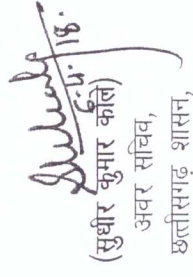 6.4.18.
(सुधीर कुमार कोले)
अवर सचिव,
छत्तीसगढ़ शासन,